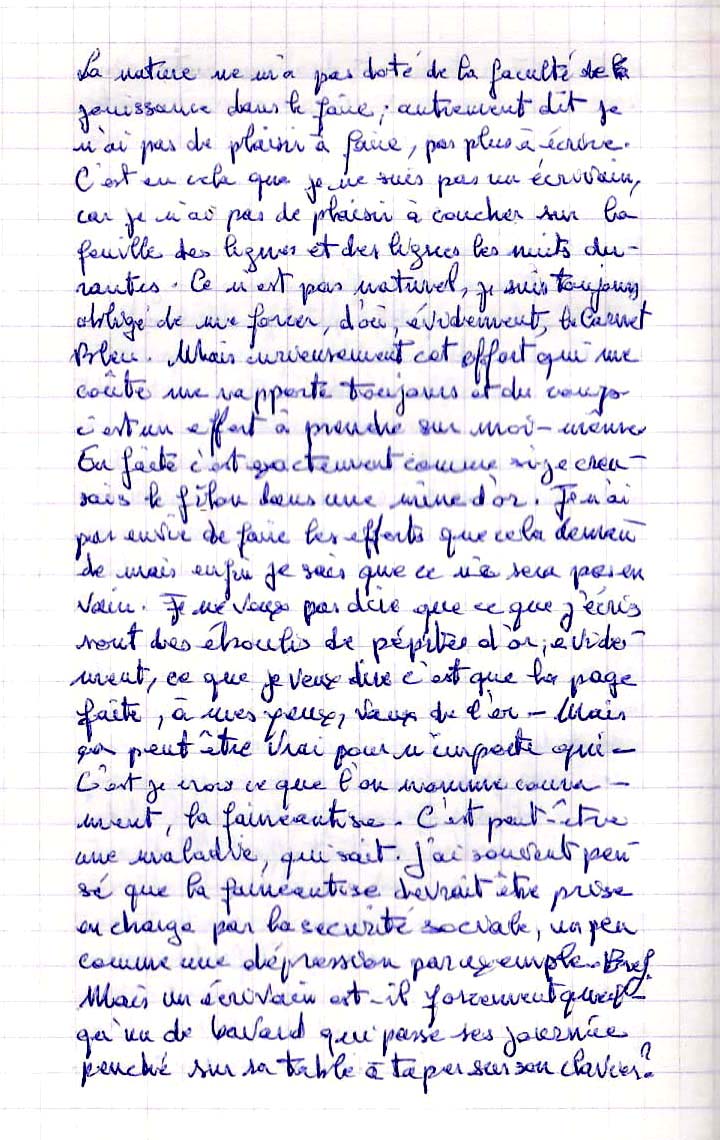 La nature ne m'a pas doté de la faculté de la
jouissance dans le faire ; autrement dit je
n'ai pas de plaisir à faire, pas plus à écrire.
C'est en cela que je ne suis pas un écrivain,
car je n'ai pas de plaisir à coucher sur la
feuille des lignes et des lignes les nuits du-
rantes. Ce n'est pas naturel, je suis toujours
obligé de me forcer, d'où, évidement, le Carnet
Bleu. Mais curieusement cet effort qui me
coûte me rapporte toujours et du coup
c'est un effort à prendre sur moi-même.
En faite c'est exactement comme si je creu-
sais le filon dans une mine d'or. Je n'ai
pas envie de faire les efforts que cela deman
de mais enfin je sais que ce ne sera pas en
vain. Je ne veux pas dire que ce que j'écris
sont des éboulis de pépites d'or, evide-
ment, ce que je veux dire c'est que la page
faite, à mes yeux, vaux de l'or - Mais
ça peut être vrai pour n'importe qui -
C'est je crois ce que l'on nomme coura-
ment, la fainéantise. C'est peut-être
une maladie, qui sait. J'ai souvent pen
sé que la fainéantise devrait être prise
en charge par la securité sociale, un peu
comme une dépression par exemple. Bref.
Mais un écrivain est-il forcement quel-
qu'un de bavard qui passe ses journée
penché sur sa table à taper sur son clavier ?